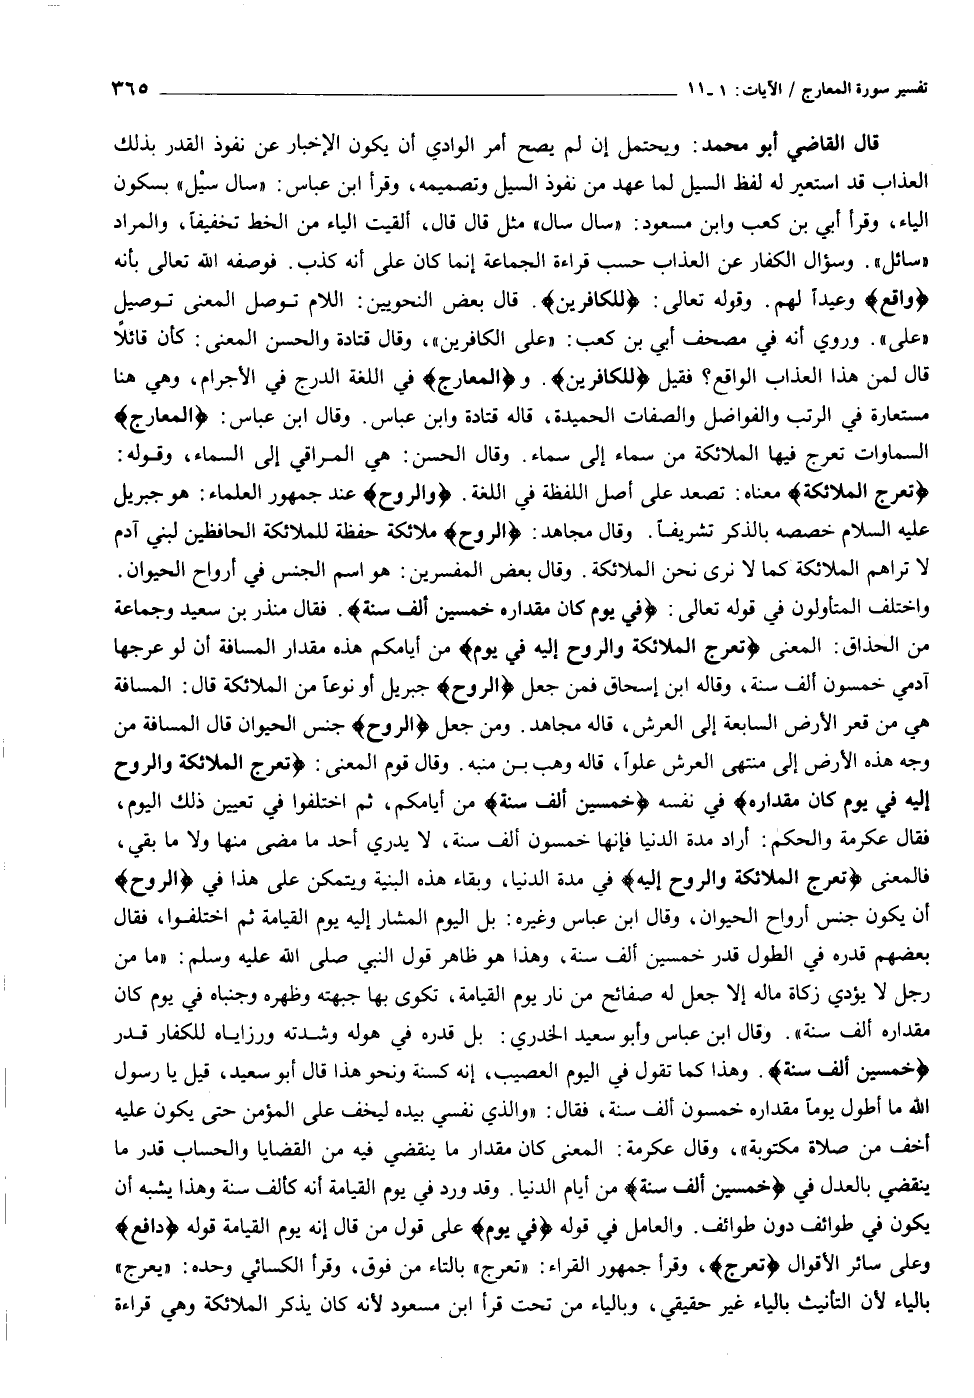 تفسير سورة المعارج / الآيات: ١ ـ ١١ ٣٦٥
قال القاضي أبو محمد: ويحتمل إن لم يصح أمر الوادي أن يكون الإخبار عن نفوذ القدر بذلك
العذاب قد استعير له لفظ السيل لما عهد من نفوذ السيل وتصميمه، وقرأ ابن عباس: «سال سيْل» بسكون
الياء، وقرأ أبي بن كعب وابن مسعود: «سال سال» مثل قال قال، ألقيت الياء من الخط تخفيفاً، والمراد
«سائل». وسؤال الكفار عن العذاب حسب قراءة الجماعة إنما كان على أنه كذب. فوصفه الله تعالى بأنه
﴿واقع﴾ وعيداً لهم. وقوله تعالى: ﴿للكافرين﴾. قال بعض النحويين: اللام تـوصل المعنى تـوصيل
«على». وروي أنه في مصحف أبي بن كعب: «على الكافرين»، وقال قتادة والحسن المعنى: كأن قائلاً
قال لمن هذا العذاب الواقع؟ فقيل ﴿للكافرين﴾. و﴿المعارج﴾ في اللغة الدرج في الأجرام، وهي هنا
مستعارة في الرتب والفواضل والصفات الحميدة، قاله قتادة وابن عباس. وقال ابن عباس: ﴿المعارج﴾
السماوات تعرج فيها الملائكة من سماء إلى سماء. وقال الحسن: هي المـراقي إلى السماء، وقـوله:
﴿تعرج الملائكة﴾ معناه: تصعد على أصل اللفظة في اللغة. ﴿والروح﴾ عند جمهور العلماء: هو جبريل
عليه السلام خصصه بالذكر تشريفاً. وقال مجاهد: ﴿الروح﴾ ملائكة حفظة للملائكة الحافظين لبني آدم
لا تراهم الملائكة كما لا نرى نحن الملائكة. وقال بعض المفسرين: هو اسم الجنس في أرواح الحيوان.
واختلف المتأولون في قوله تعالى: ﴿في يوم كان مقداره خمسين ألف سنة﴾. فقال منذر بن سعيد وجماعة
من الحذاق: المعنى ﴿تعرج الملائكة والروح إليه في يوم﴾ من أيامكم هذه مقدار المسافة أن لو عرجها
آدمي خمسون ألف سنة، وقاله ابن إسحاق فمن جعل ﴿الروح﴾ جبريل أو نوعاً من الملائكة قال: المسافة
هي من قعر الأرض السابعة إلى العرش، قاله مجاهد. ومن جعل ﴿الروح﴾ جنس الحيوان قال المسافة من
وجه هذه الأرض إلى منتهى العرش علواً، قاله وهب بـن منبه. وقال قوم المعنى: ﴿تعرج الملائكة والروح
إليه في يوم كان مقداره﴾ في نفسه ﴿خمسين ألف سنة﴾ من أيامكم، ثم اختلفوا في تعيين ذلك اليوم،
فقال عكرمة والحكم: أراد مدة الدنيا فإنها خمسون ألف سنة، لا يدري أحد ما مضى منها ولا ما بقي،
فالمعنى ﴿تعرج الملائكة والروح إليه﴾ في مدة الدنيا، وبقاء هذه البنية ويتمكن على هذا في ﴿الروح﴾
أن يكون جنس أرواح الحيوان، وقال ابن عباس وغيره: بل اليوم المشار إليه يوم القيامة ثم اختلفـوا، فقال
بعضهم قدره في الطول قدر خمسين ألف سنة، وهذا هو ظاهر قول النبي صلى الله عليه وسلم: «ما من
رجل لا يؤدي زكاة ماله إلا جعل له صفائح من نار يوم القيامة، تكوى بها جبهته وظهره وجنباه في يوم كان
مقداره ألف سنة». وقال ابن عباس وأبو سعيد الخدري: بل قدره في هوله وشـدته ورزايـاه للكفار قـدر
﴿خمسين ألف سنة﴾. وهذا كما تقول في اليوم العصيب، إنه كسنة ونحو هذا قال أبو سعيد، قيل يا رسول
الله ما أطول يوماً مقداره خمسون ألف سنة، فقال: «والذي نفسي بيده ليخف على المؤمن حتى يكون عليه
أخف من صلاة مكتوبة»، وقال عكرمة: المعنى كان مقدار ما ينقضي فيه من القضايا والحساب قدر ما
ينقضي بالعدل في ﴿خمسين ألف سنة﴾ من أيام الدنيا. وقد ورد في يوم القيامة أنه كألف سنة وهذا يشبه أن
يكون في طوائف دون طوائف. والعامل في قوله ﴿في يوم﴾ على قول من قال إنه يوم القيامة قوله ﴿دافع﴾
وعلى سائر الأقوال ﴿تعرج﴾، وقرأ جمهور القراء: «تعرج» بالتاء من فوق، وقرأ الكسائي وحده: «يعرج»
بالياء لأن التأنيث بالياء غير حقيقي، وبالياء من تحت قرأ ابن مسعود لأنه كان يذكر الملائكة وهي قراءة